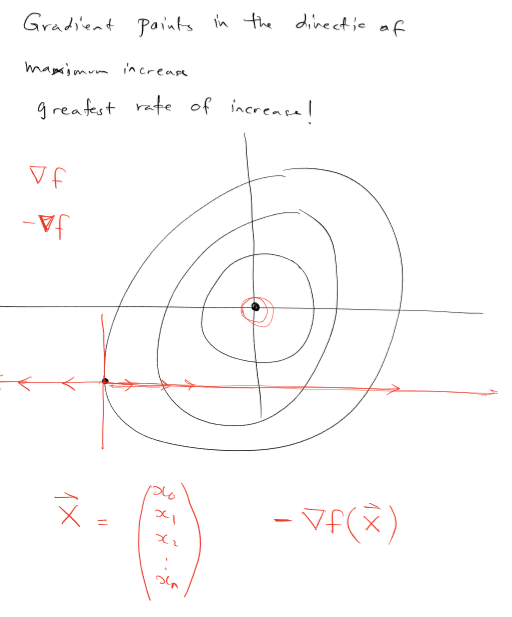 Gradient points in the directio of
maximum increase
greatest rate of increase!
∇f
-∇f
x⃗ = (x₀
x₁
x₂
⋮
xₙ)
- ∇f(x⃗)